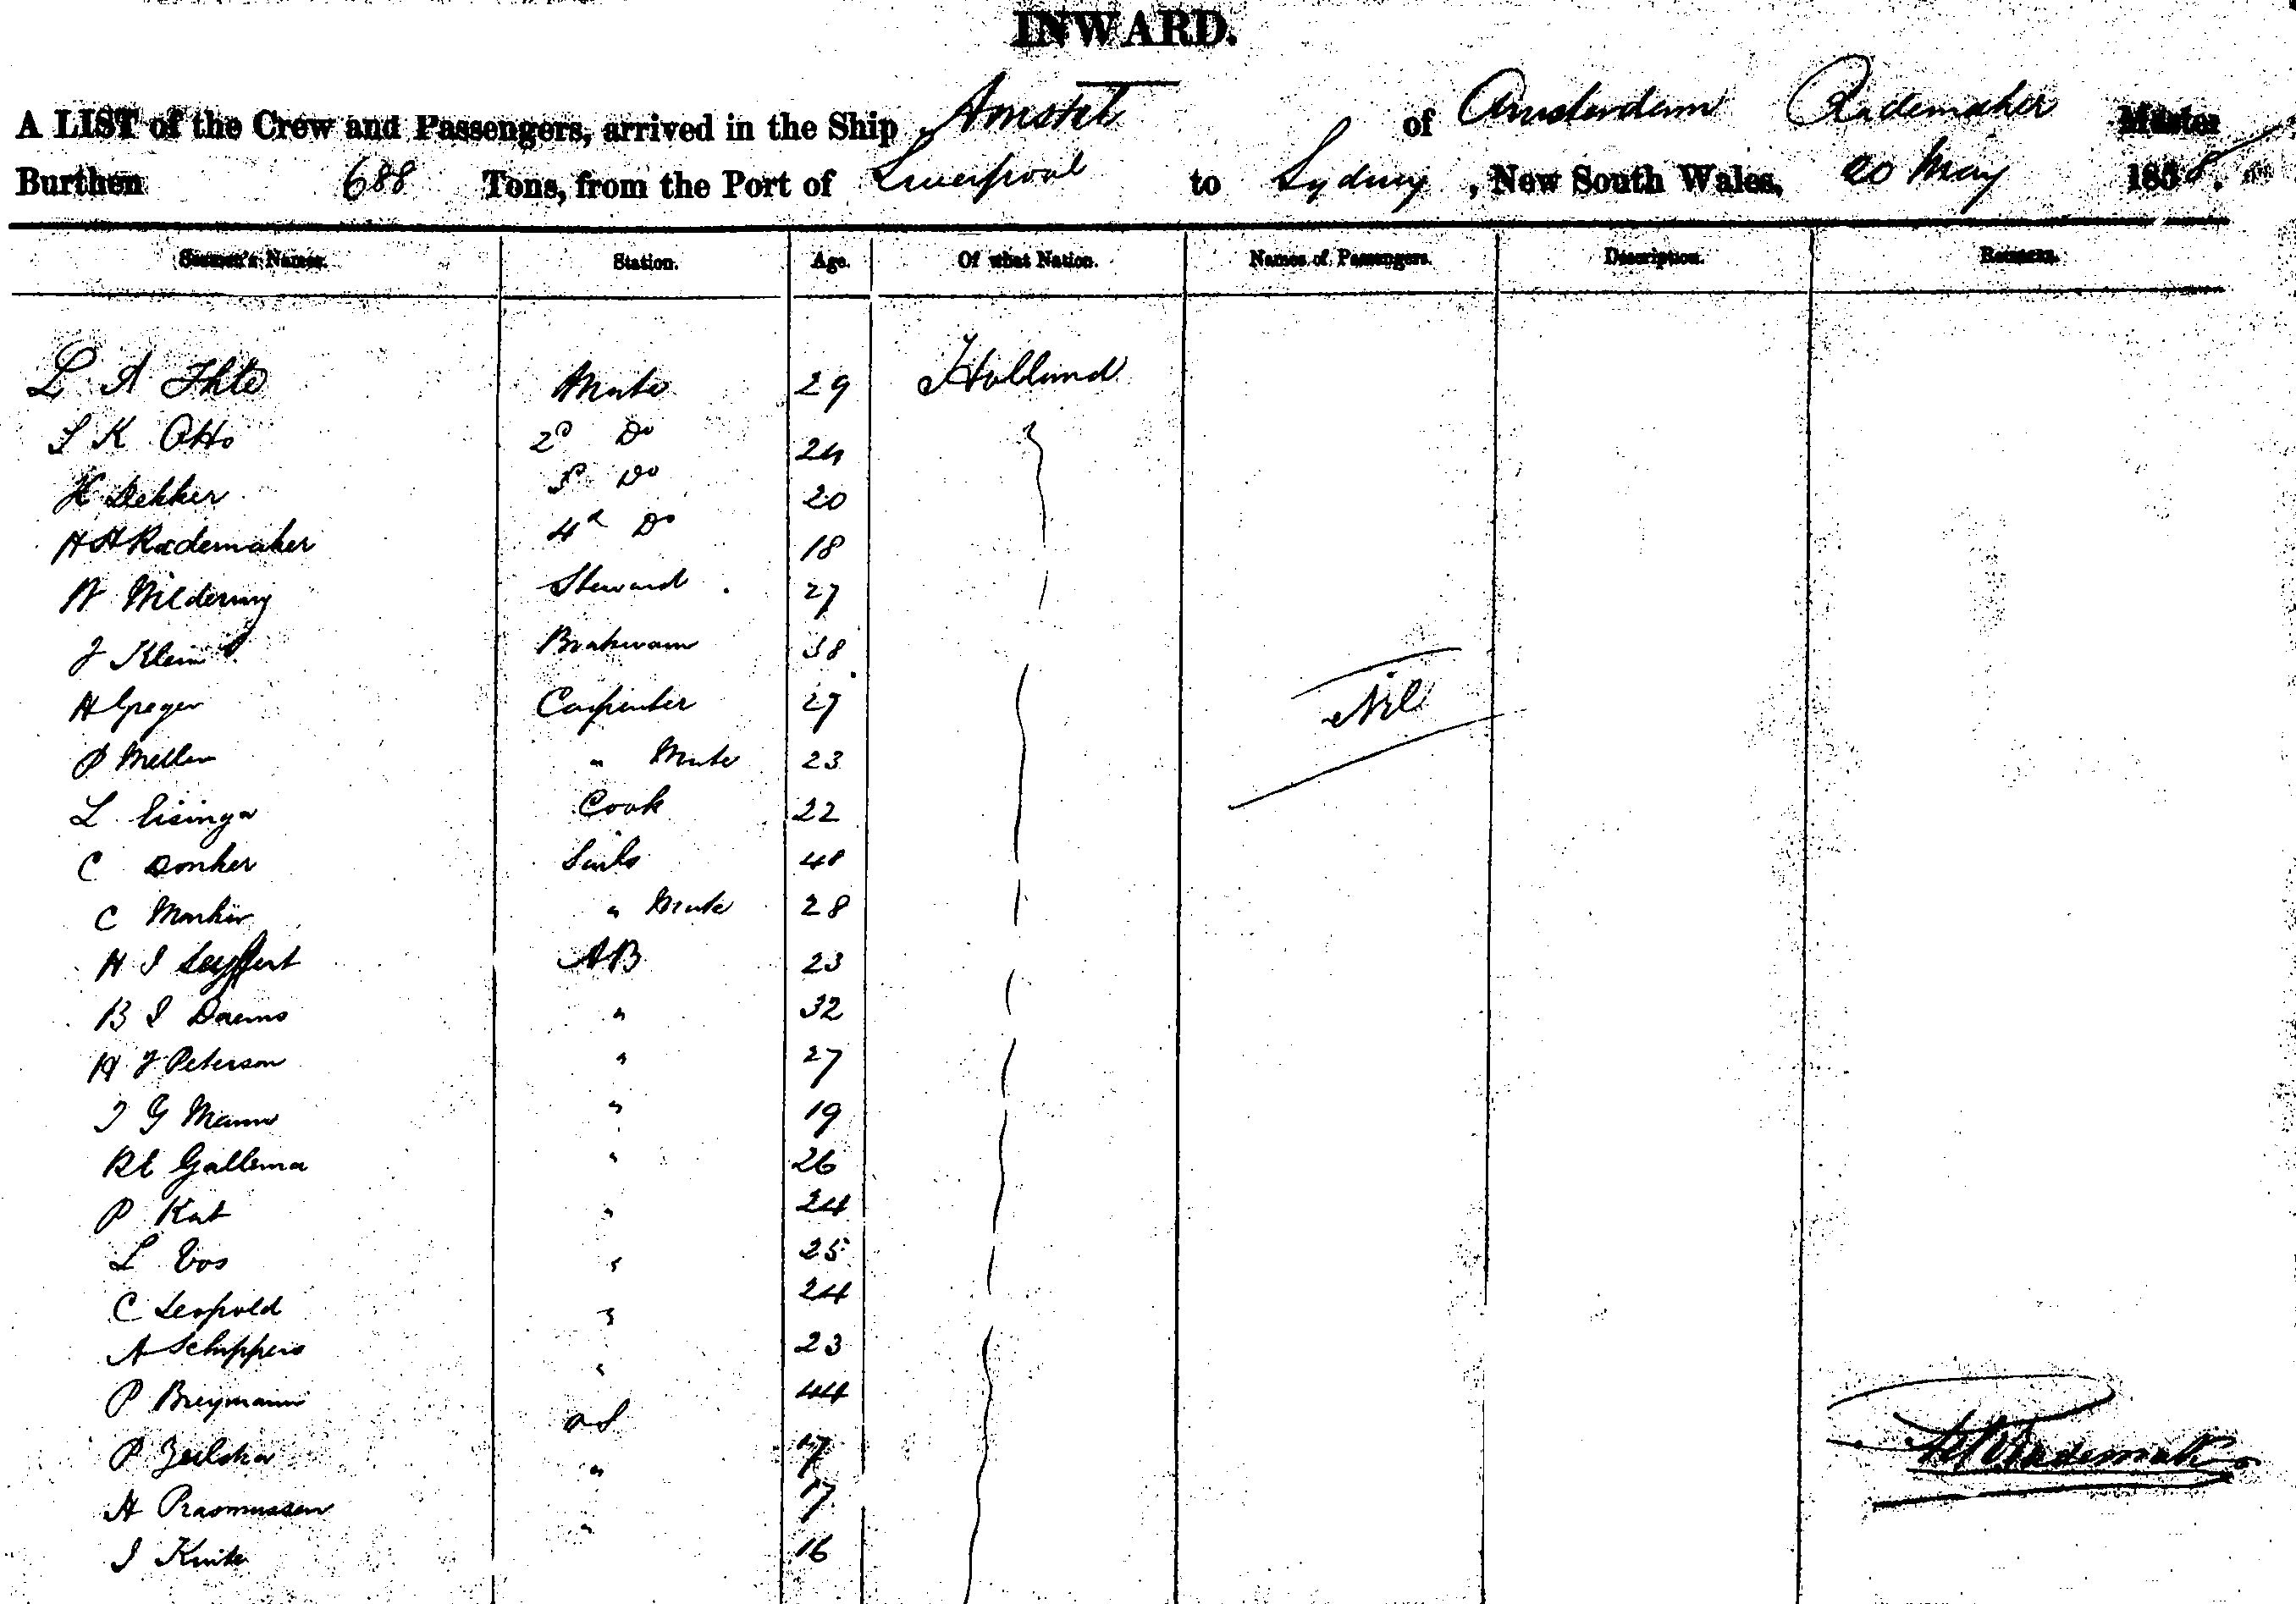 INWARD.
A LIST of the Crew and Passengers, arrived in the Ship Amstel of Amsterdam Rademaker Master
Burthen 688 Tons, from the Port of Liverpool to Sydney, New South Wales, 20 May 1858.
Seamen's Names. Station. Age. Of what Nation. Names of Passengers. Description. Remarks.
L A Ihte Mate 29 Holland
S K Otto 2d Do 24
H Dekker 3d Do 20
H A Rademaker 4th Do 18
W Wildering Steward 27
J Klein 38
H Greger Carpenter 27 Nil
P Meller " Mate 23
L Eisinga Cook 22
C Donker Sails 48
C Marker " Mate 28
H I Seyffert AB 23
B I Daems " 32
H J Peterson " 27
J G Mann " 19
R E Gallema " 26
P Kat " 24
L Vos " 25
C Leopold " 24
A Schippers " 23
P Breymann 44
P OS 17
H Rasmussen " 17
I " 16
Rademaker